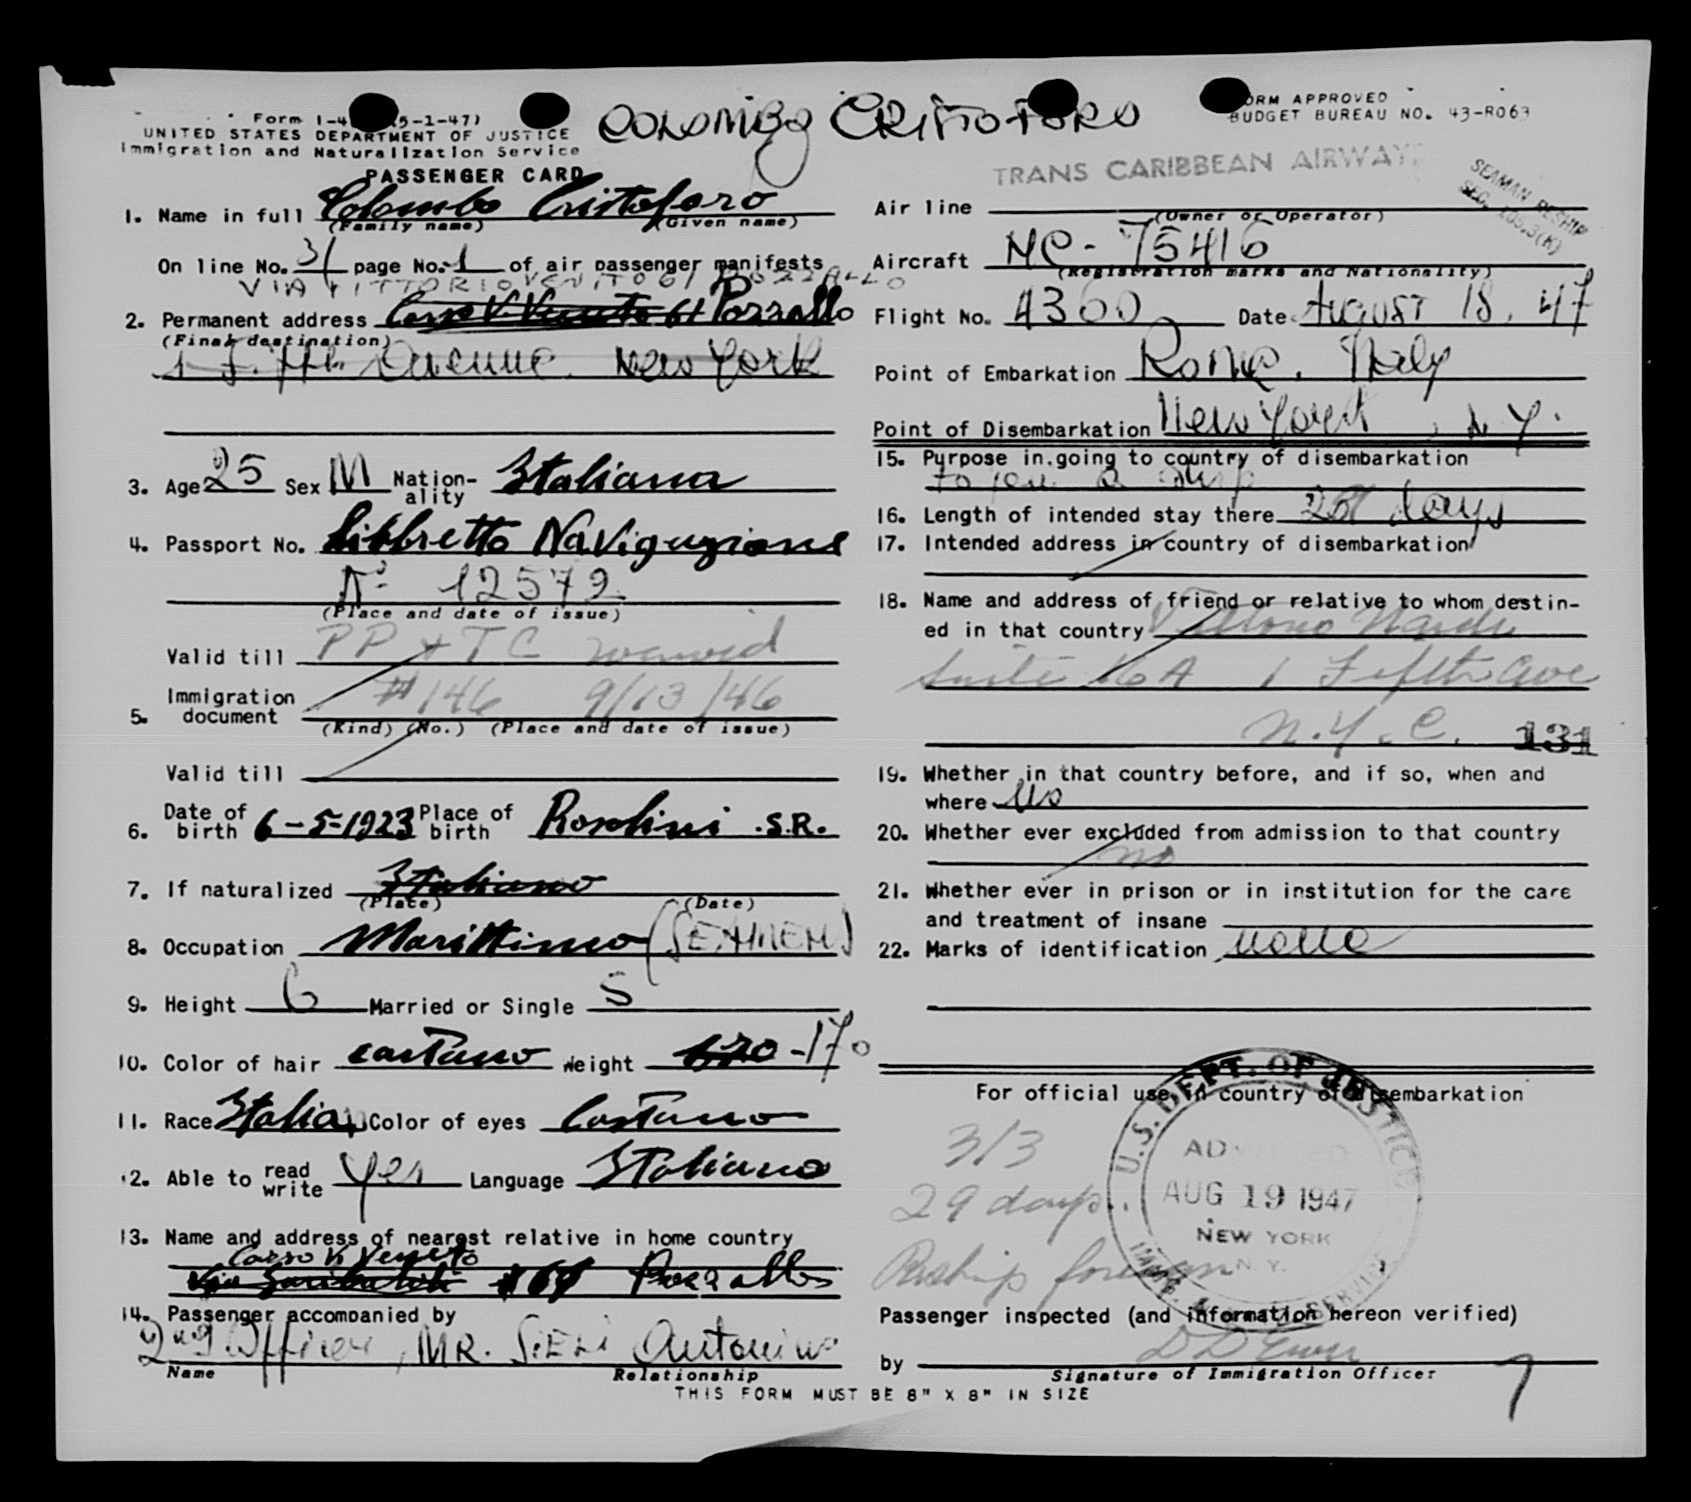 COLOMBO CRISTOFORO
Form I-4 (5-1-47)
UNITED STATES DEPARTMENT OF JUSTICE
Immigration and Naturalization Service
PASSENGER CARD
FORM APPROVED
BUDGET BUREAU NO. 43-R063
TRANS CARIBBEAN AIRWAY
SEAMAN RESHIP
SEC. 105.3(K)
1. Name in full Colombo Cristoforo
(Family name) (Given name)
On line No. 31 page No. 1 of air passenger manifests
VIA VITTORIO VENITO 61 POZZALLO
2. Permanent address Corso V. Veneto 61 Pozzallo
(Final destination)
1 Fifth Avenue. New York
3. Age 25 Sex M Nationality Italiana
4. Passport No. Libbretto Navigazione
No 12572
(Place and date of issue)
Valid till PP + TC waived
5. Immigration document #146 9/13/46
(Kind) (No.) (Place and date of issue)
Valid till
6. Date of birth 6-5-1923 Place of birth Rosolini .S.R.
7. If naturalized Italiano
(Place) (Date)
8. Occupation Marittimo (SEAMEN)
9. Height 6 Married or Single S
10. Color of hair castano Weight 620 - 170
11. Race Italian Color of eyes Castano
12. Able to read write yes Language Italiano
13. Name and address of nearest relative in home country
Corso V. Veneto
Via Garibaldi # 61 Pozzallo
14. Passenger accompanied by
2nd Officer, MR. Antonino
Name Relationship
THIS FORM MUST BE 8" X 8" IN SIZE
Air line
(Owner or Operator)
Aircraft NC-75416
(Registration marks and Nationality)
Flight No. 4360 Date August 18, 47
Point of Embarkation Rome, Italy
Point of Disembarkation New York, N.Y.
15. Purpose in going to country of disembarkation
to join a ship
16. Length of intended stay there 29 days
17. Intended address in country of disembarkation
18. Name and address of friend or relative to whom destin-
ed in that country Nardi
Suite 16 A 1 Fifth Ave
N.Y.C. 131
19. Whether in that country before, and if so, when and
where No
20. Whether ever excluded from admission to that country
no
21. Whether ever in prison or in institution for the care
and treatment of insane
22. Marks of identification None
For official use in country of disembarkation
3/3
29 days.
Reship foreign
U.S. DEPT. OF JUSTICE
ADMITTED
AUG 19 1947
NEW YORK
N.Y.
Passenger inspected (and information hereon verified)
by
Signature of Immigration Officer
7